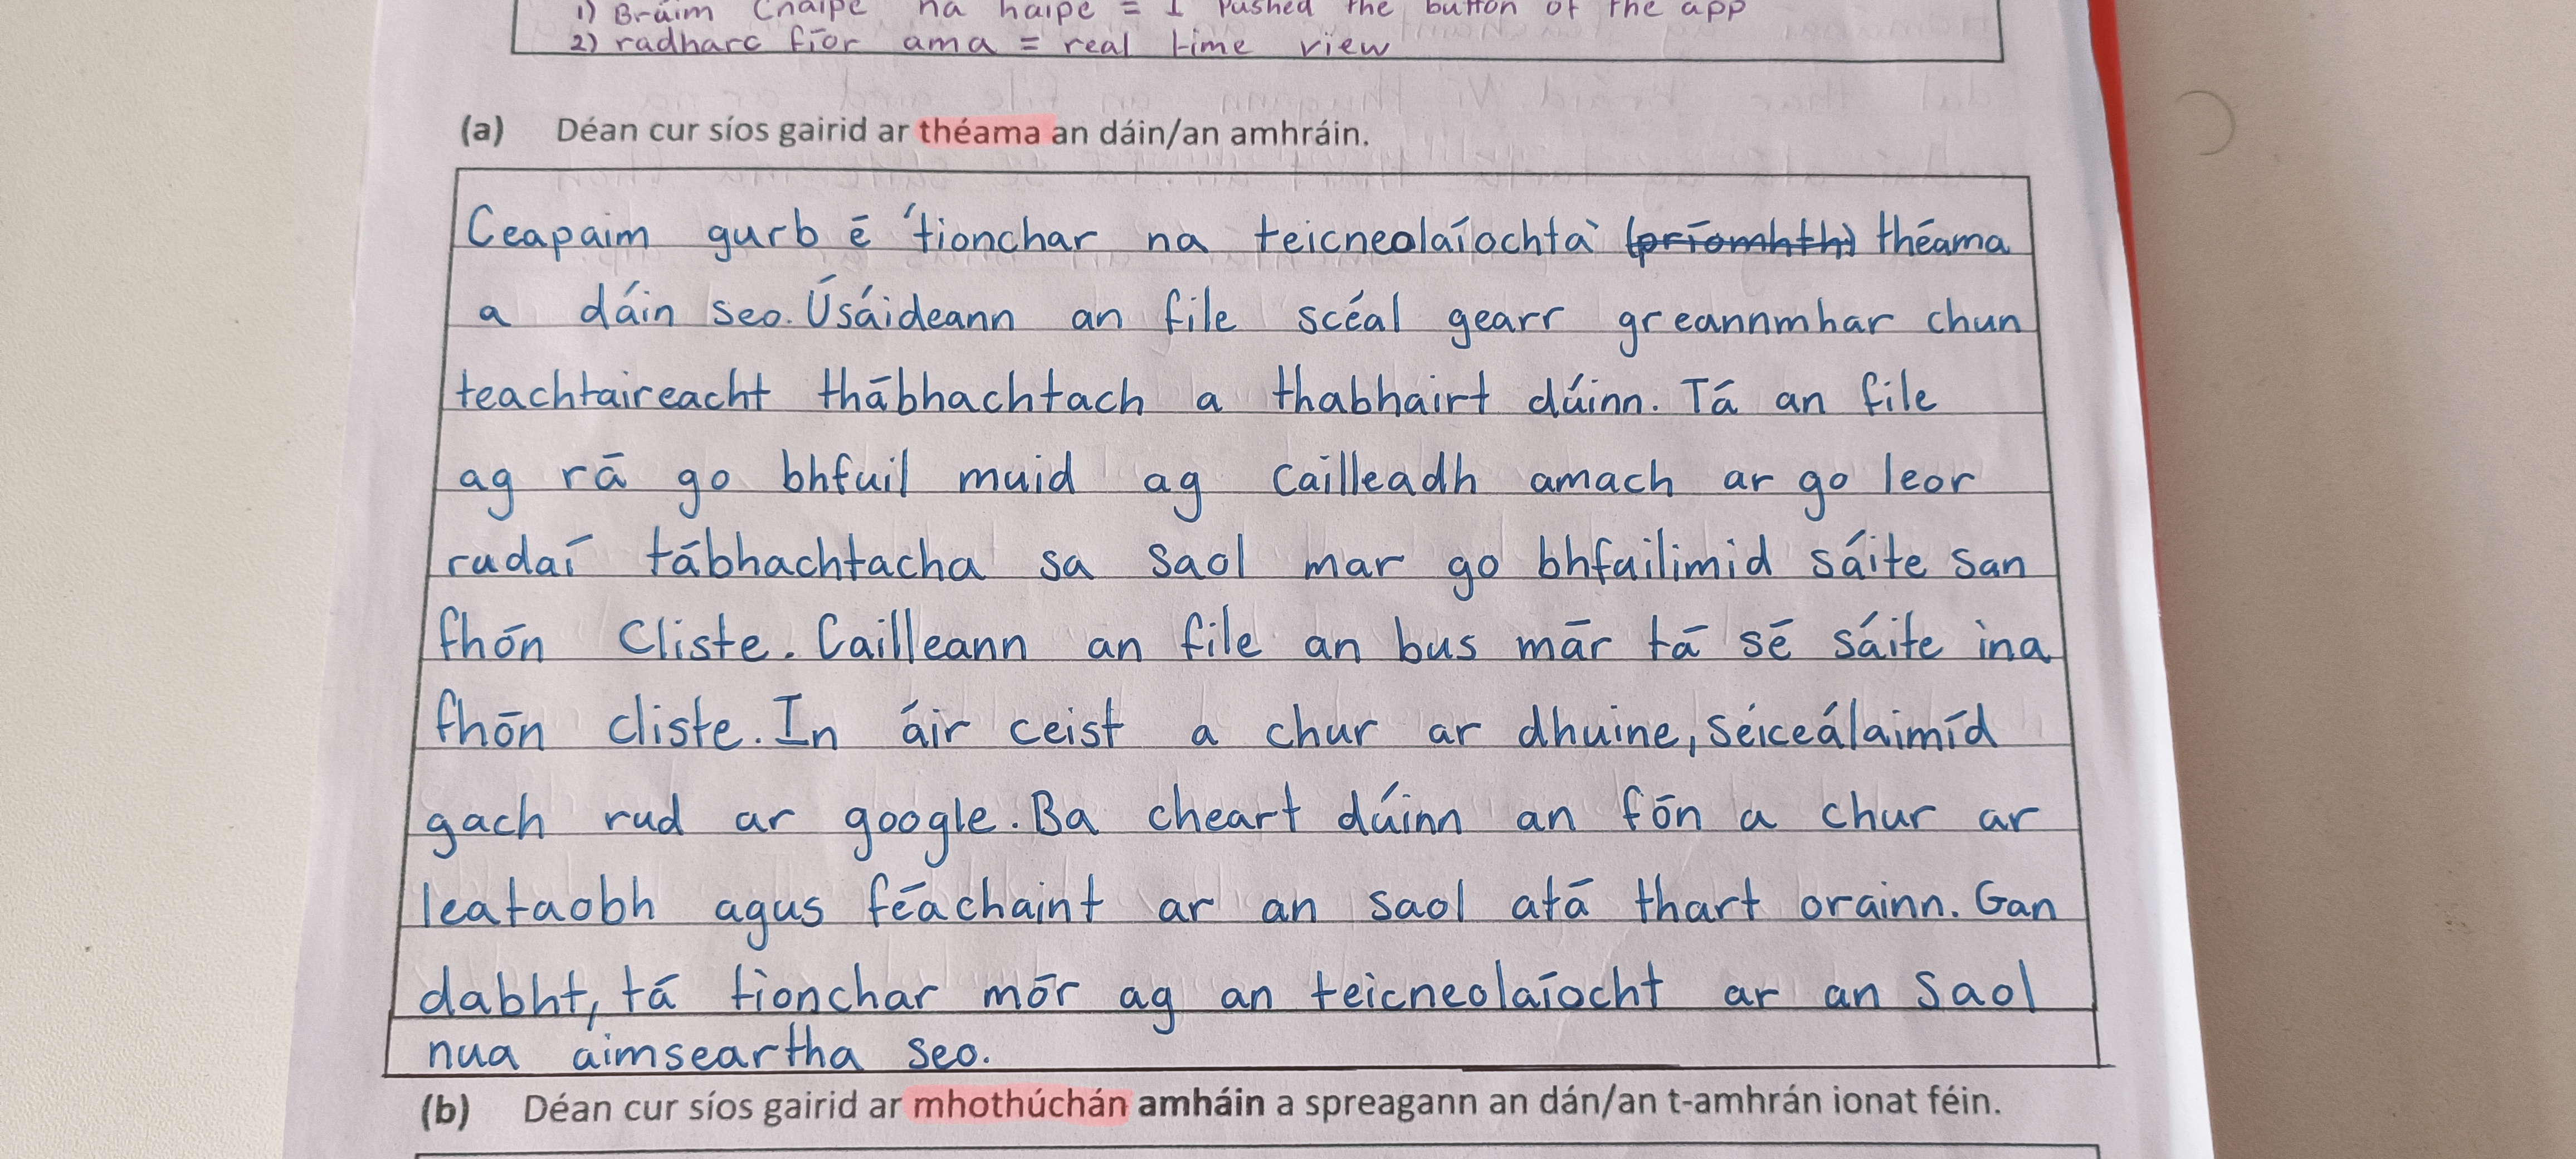 1) Bráim Cnaipe na haipe = I pushed the button of the app
2) radharc fíor ama = real time view
(a) Déan cur síos gairid ar théama an dáin/an amhráin.
Ceapaim gurb é 'tionchar na teicneolaíochta' (príomhth) théama
a dáin seo. Úsáideann an file scéal gearr greannmhar chun
teachtaireacht thábhachtach a thabhairt dúinn. Tá an file
ag rá go bhfuil muid ag cailleadh amach ar go leor
rudaí tábhachtacha sa saol mar go bhfuilimid sáite san
fhón Cliste. Cailleann an file an bus már tá sé sáite ina
fhón cliste. In áir ceist a chur ar dhuine, séiceálaimíd
gach rud ar google. Ba cheart dúinn an fón a chur ar
leataobh agus féachaint ar an saol atá thart orainn. Gan
dabht, tá tionchar mór ag an teicneolaíocht ar an saol
nua aimseartha seo.
(b) Déan cur síos gairid ar mhothúchán amháin a spreagann an dán/an t-amhrán ionat féin.